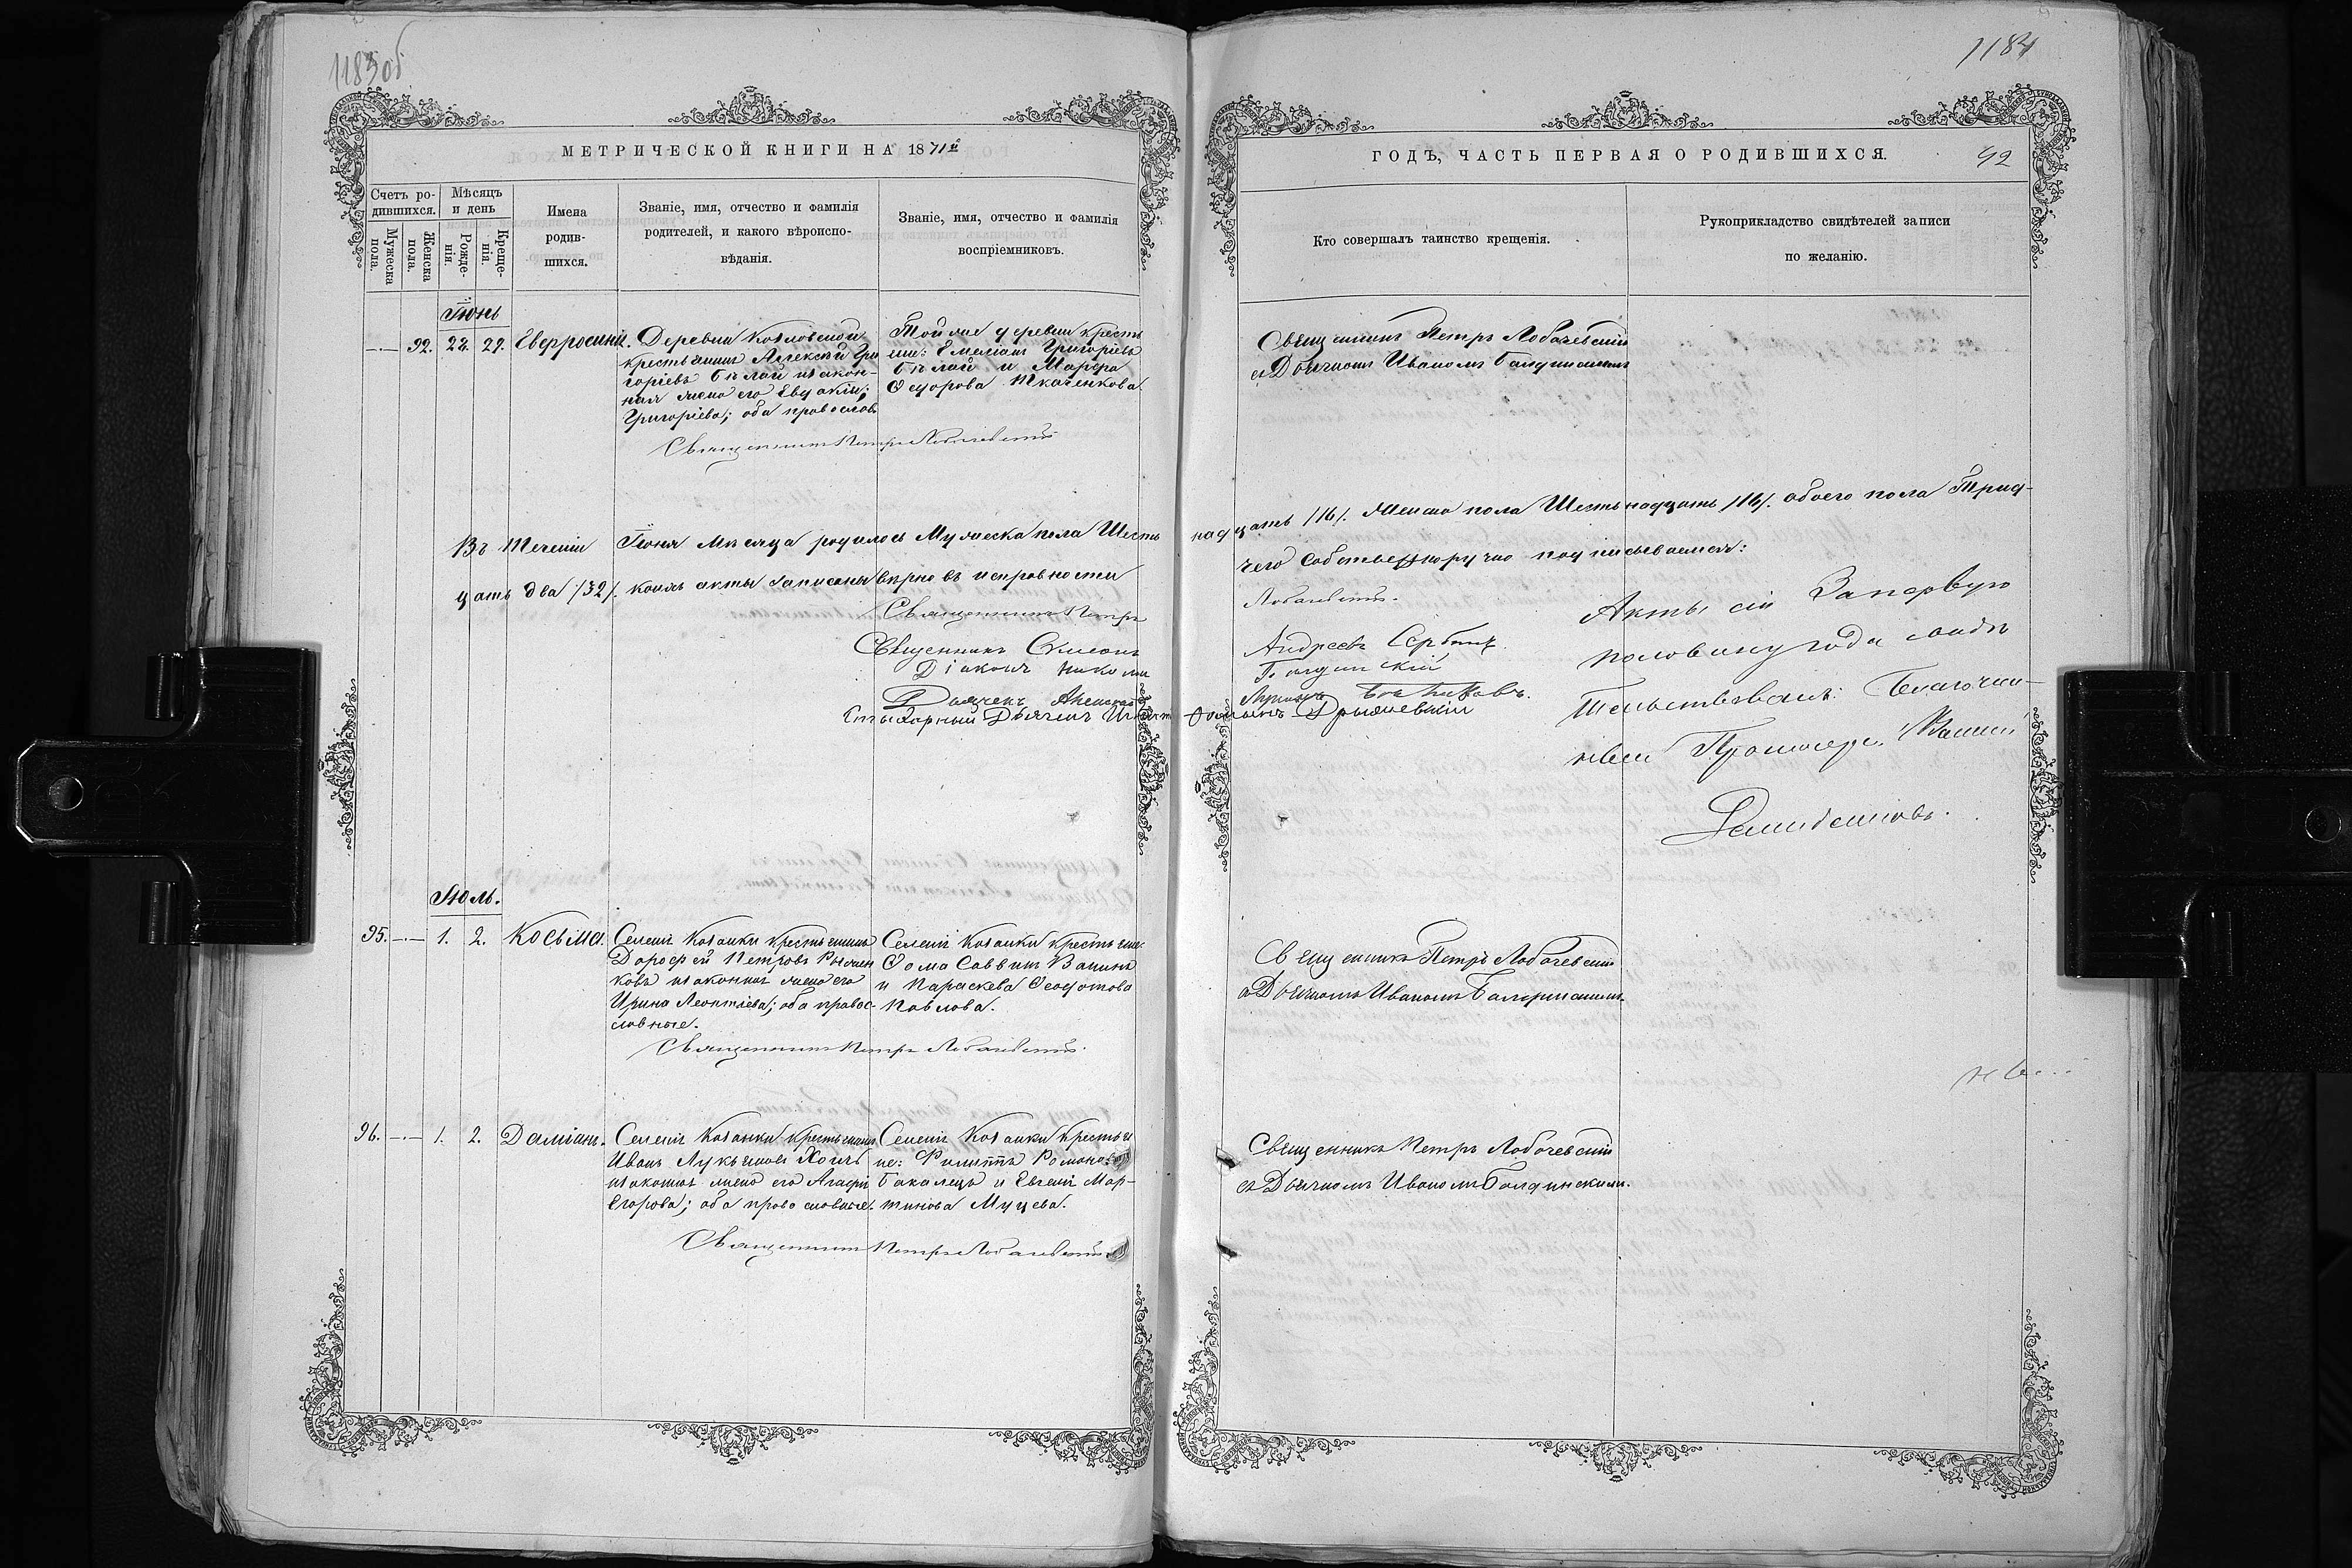 1183об
МЕТРИЧЕСКОЙ КНИГИ НА 1871й
Счетъ ро-
дившихся.
Мѣсяцъ
и день
Мужеска
пола.
Женска
пола.
Рожде-
нія.
Креще-
нія.
Имена
родив-
шихся.
Званіе, имя, отчество и фамилія
родителей, и какого вѣроиспо-
вѣданія.
Званіе, имя, отчество и фамилія
воспріемниковъ.
Іюнь
92. 28. 29. Евфросинія.
Деревни Козловской
крестьянинъ Алексѣй Гри
горіевъ Бѣлай и закон-
ная жена его Евдокія
Григоріева; оба православ
Той же деревни кресть
яни: Емеліанъ Григоріевъ
Бѣлай и Марфа
Ѳедорова Ткаченкова
Священникъ Петръ Лобачевскій
Въ теченіи Іюня мѣсяца родилось Мужеска пола Шесть
цать два /32/. коихъ акты записаны вѣрно въ исправности
Священникъ Петръ
Священникъ Симеонъ
Діаконъ Николай
Дьячекъ
Дьячекъ
Іюль.
95. 1. 2. Косьма.
Селенія Казанки крестьянинъ
Дорофей Петровъ
ковъ и законная жена его
Ирина Леонтіева; оба правос-
лавные.
Селенія Казанки крестьяне:
Ѳома Саввинъ Ванинъ
и Параскева Ѳеодотова
Павлова.
Священникъ Петръ Лобачевскій.
96. 1. 2. Даміанъ.
Селенія Казанки крестьянинъ
Иванъ Лукьяновъ
и законная жена его Агафія
Егорова; оба православные.
Селенія Казанки крестья
не: Филиппъ Романовъ
Бакалецъ и Евгенія Мар-
тинова Муцева.
Священникъ Петръ Лобачевскій
1184
ГОДЪ, ЧАСТЬ ПЕРВАЯ О РОДИВШИХСЯ.
92
Кто совершалъ таинство крещенія.
Рукоприкладство свидѣтелей записи
по желанію.
Священникъ Петръ Лобачевскій
съ Дьячкомъ Иваномъ Балдинскимъ
надцать /16/. Женска пола Шестьнадцать /16/. обоего пола Трид-
чего собственноручно подписываемся:
Лобачевскій.
Андреевъ Сербинъ.
Балдинскій
Акты сіи За первую
половину года свидѣ
тельствовалъ: Благочин-
ный
Священникъ Петръ Лобачевскій
съ Дьячкомъ Иваномъ Балдинскимъ.
Священникъ Петръ Лобачевскій
съ Дьячкомъ Иваномъ Балдинскимъ.